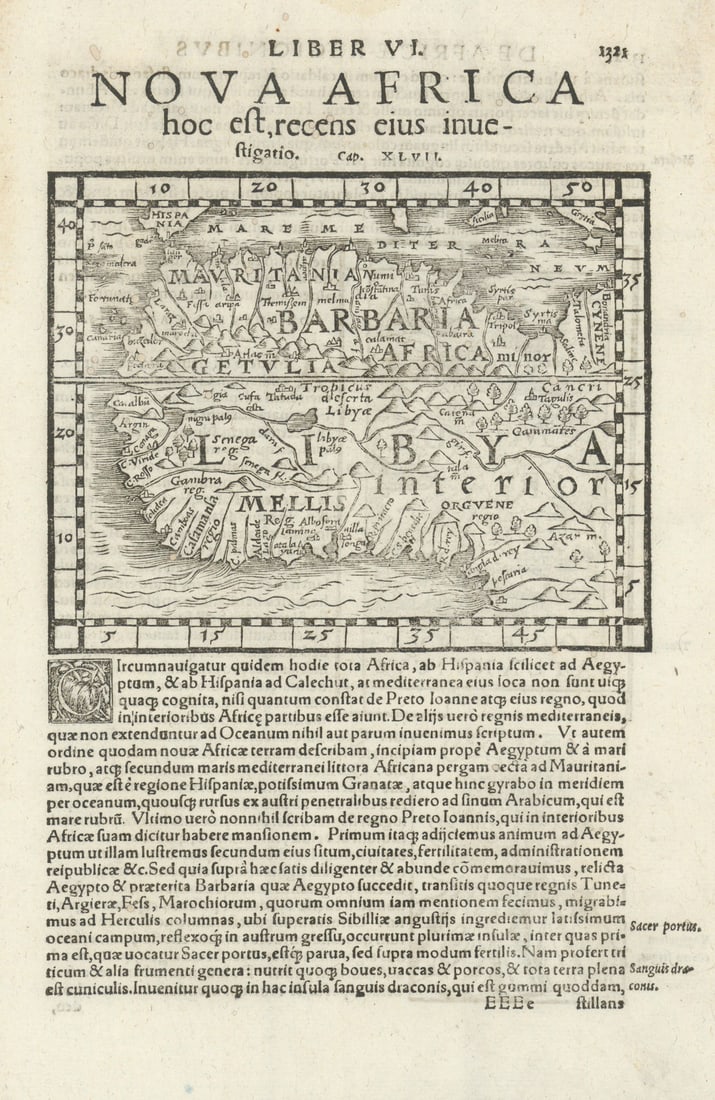 LIBER VI. 1321
NOVA AFRICA
hoc est, recens eius inue-
stigatio. Cap. XLVII.
10 20 30 40 50
40 HISPA
NIA
MARE ME
DITER RA
NEVM
Sicilia
Melita
MAVRITANIA Numi
35
Fortunati
Fesse
Tremissem
Tunis
Africa
Syrtis
BARBARIA
Tripol
CYNENE
30
Canariæ
calamat
AFRICA minor
GETVLIA
Tropicus Cancri 25
deserta
Libyæ
Tapulis
Argin
nigri palº
Gammates
20
C. Viride
C. Rosso
Senega
reg.
libyæ
palº
LIBYA
senega fl.
interior 15
Gambra
reg.
MELLIS
ORGVENE
regio
Cafamania
regio
C. palmas
10
Azar m.
5
5 15 25 35 45
CIrcumnauigatur quidem hodie tota Africa, ab Hispania scilicet ad Aegy-
ptum, & ab Hispania ad Calechut, at mediterranea eius loca non sunt uicꝫ
quaqꝫ cognita, nisi quantum constat de Preto Ioanne atqꝫ eius regno, quod
in interioribus Africę partibus esse aiunt. De alijs uerò regnis mediterraneis,
quæ non extenduntur ad Oceanum nihil aut parum inuenimus scriptum. Vt autem
ordine quodam nouæ Africæ terram describam, incipiam propè Aegyptum & à mari
rubro, atqꝫ secundum maris mediterranei littora Africana pergam recta ad Mauritani-
am, quæ est è regione Hispaniæ, potissimum Granatæ, atque hinc gyrabo in meridiem
per oceanum, quousqꝫ rursus ex austri penetralibus rediero ad sinum Arabicum, qui est
mare rubrū. Vltimo uerò nonnihil scribam de regno Preto Ioannis, qui in interioribus
Africæ suam dicitur habere mansionem. Primum itaqꝫ adijciemus animum ad Aegy-
ptum ut illam lustremus secundum eius situm, ciuitates, fertilitatem, administrationem
reipublicæ &c. Sed quia suprà hæc satis diligenter & abunde cōmemorauimus, relicta
Aegypto & præterita Barbaria quæ Aegypto succedit, transitis quoque regnis Tune-
ti, Argieræ, Fess, Marochiorum, quorum omnium iam mentionem fecimus, migrabi-
mus ad Herculis columnas, ubi superatis Sibilliæ angustijs ingrediemur latissimum
oceani campum, reflexoqꝫ in austrum gressu, occurrunt plurimæ insulæ, inter quas pri-
ma est, quæ uocatur Sacer portus, estqꝫ parua, sed supra modum fertilis. Nam profert tri
ticum & alia frumenti genera: nutrit quoqꝫ boues, uaccas & porcos, & tota terra plena
est cuniculis. Inuenitur quoqꝫ in hac insula sanguis draconis, qui est gummi quoddam,
Sacer portus.
Sanguis dra-
conis.
EEEe stillans